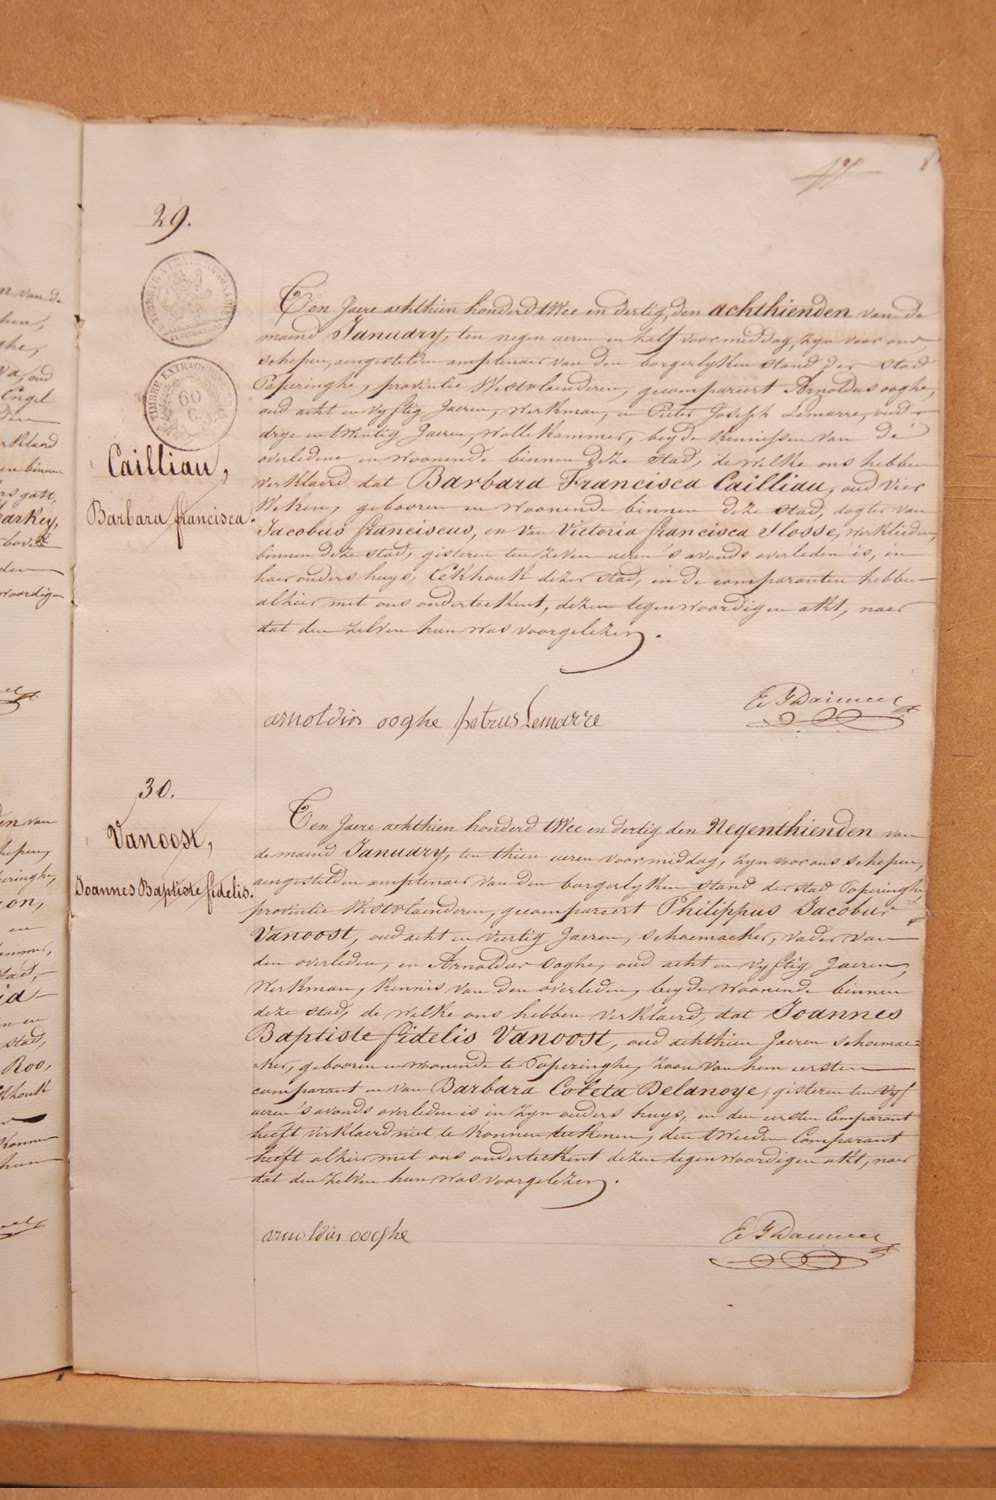 8
29.
TIMBRE EXTRAORD
60
C.
Cailliau,
Barbara francisca.
Ten Jaere achthien honderd twee en dertig, den achthienden van de
maend January, ten negen ueren en half voormiddag, zyn voor ons
schepen, aengestelden amptenaer van den borgerlyken stand der stad
Poperinghe, provintie Westvlaenderen, gecompareert Arnoldus ooghe,
oud acht en vyftig Jaeren, werkman, en Pieter Joseph Lemarre, oud
drye en twintig Jaeren, wolle kammer, beyde kennissen van de
overledene en woonende binnen deze stad, de welke ons hebben
verklaerd dat Barbara Francisca Cailliau, oud vier
Weken, gebooren en woonende binnen deze stad, dogter van
Jacobus franciscus, en van Victoria francisca Slosse, werklieden
binnen deze stad, gisteren ten zeven ueren 's avonds overleden is, in
haer ouders huys, Eekhoutk dezer stad, en de comparanten hebben
alhier met ons onderteekent, dezen tegenwoordigen akt, naer
dat den zelven hun was voorgelezen.
arnoldus ooghe petrus Lemarre
30.
Vanoost,
Joannes Baptiste fidelis.
Ten Jaere achthien honderd twee en dertig den Negenthienden van
de maend January, ten thien ueren voormiddag, zyn voor ons schepen,
aengestelden amptenaer van den borgerlyken stand der stad Poperinghe
provintie Westvlaenderen, gecompareert Philippus Jacobus
Vanoost, oud acht en veertig Jaeren, schoemaeker, vader van
den overleden, en Arnoldus Ooghe, oud acht en vyftig Jaeren,
Werkman, kennis van den overleden, beyde woonende binnen
deze stad, de welke ons hebben verklaerd, dat Joannes
Baptiste fidelis Vanoost, oud achthien Jaeren schoemae=
ker, gebooren en woonende te Poperinghe, zoon van hem eersten
comparant en van Barbara Coleta Delanoye, gisteren ten vyf
ueren 's avonds overleden is in zyn ouders huys, en den eersten Comparant
heeft verklaerd niet te konnen teekenen, den tweeden Comparant
heeft alhier met ons onderteekent dezen tegenwoordigen akt, naer
dat den zelven hun was voorgelezen.
arnoldus ooghe